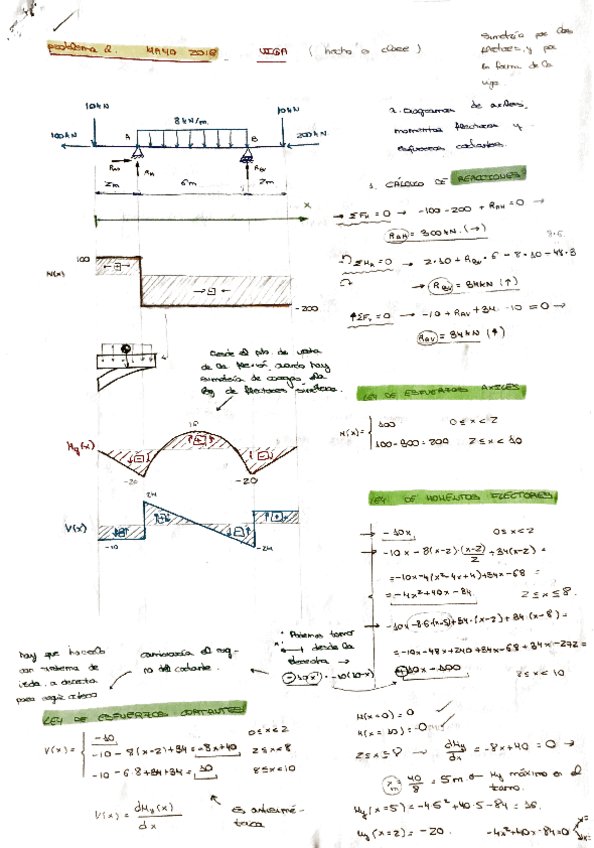 problema 2. MAYO 2018 VIGA (hecho a clase)
Simetría por las
flectores, y por
la forma de la
viga.
2. Diagramas de axiles,
momentos flectores y
esfuerzos cortantes.
10kN
10kN
8kN/m
100kN
A
B
200kN
2m
6m
2m
x
1. CÁLCULO DE REACCIONES
→ ΣFx = 0 → -100 - 200 + RAH = 0 →
RAH = 300kN (→)
8·6
ΣMA = 0 → 2·10 + RBV · 6 - 8·10 - 48·3
→ RBV = 34kN (↑)
↑ΣFv = 0 → -10 + RAV + 34 - 10 = 0 →
RAV = 34kN (↑)
N(x)
100
-200
Desde el pto. de vista
de la flexión, cuando hay
simetría de cargas, la
ley de flectores simétrica.
LEY DE ESFUERZOS AXILES
N(x) = { 100 0 ≤ x < 2
100 - 300 = 200 2 ≤ x < 10
My(x)
16
-20
-20
V(x)
24
-10
-24
LEY DE MOMENTOS FLECTORES
→ -10x 0 ≤ x < 2
→ -10x - 8(x-2)·(x-2)/2 + 34(x-2) =
= -10x - 4(x² - 4x + 4) + 34x - 68 =
= -4x² + 40x - 84 2 ≤ x ≤ 8
→ -10x - 8·6·(x-5) + 34·(x-2) + 34·(x-8) =
= -10x - 48x + 240 + 34x - 68 + 34x - 272 =
10x - 100
8 ≤ x < 10
hay que hacerlo
con sistema de
izda. a derecha
para
cambiaría el sig-
no del cortante.
Podemos tomar
x' desde la
derecha →
-10x' = -10(10-x)
LEY DE ESFUERZOS CORTANTES
V(x) = { -10 0 ≤ x < 2
-10 - 8(x-2) + 34 = -8x + 40 2 ≤ x < 8
-10 - 6·8 + 34 + 34 = 10 8 ≤ x < 10
V(x) = dMy(x)/dx
Es antisimé-
trica
M(x=0) = 0
M(x=10) = 0
2 ≤ x ≤ 8 → dMy/dx = -8x + 40 = 0 →
xm = 40/8 = 5m ← My máximo en el
tramo.
My(x=5) = -4·5² + 40·5 - 84 = 16.
My(x=2) = -20. -4x² + 40x - 84 = 0